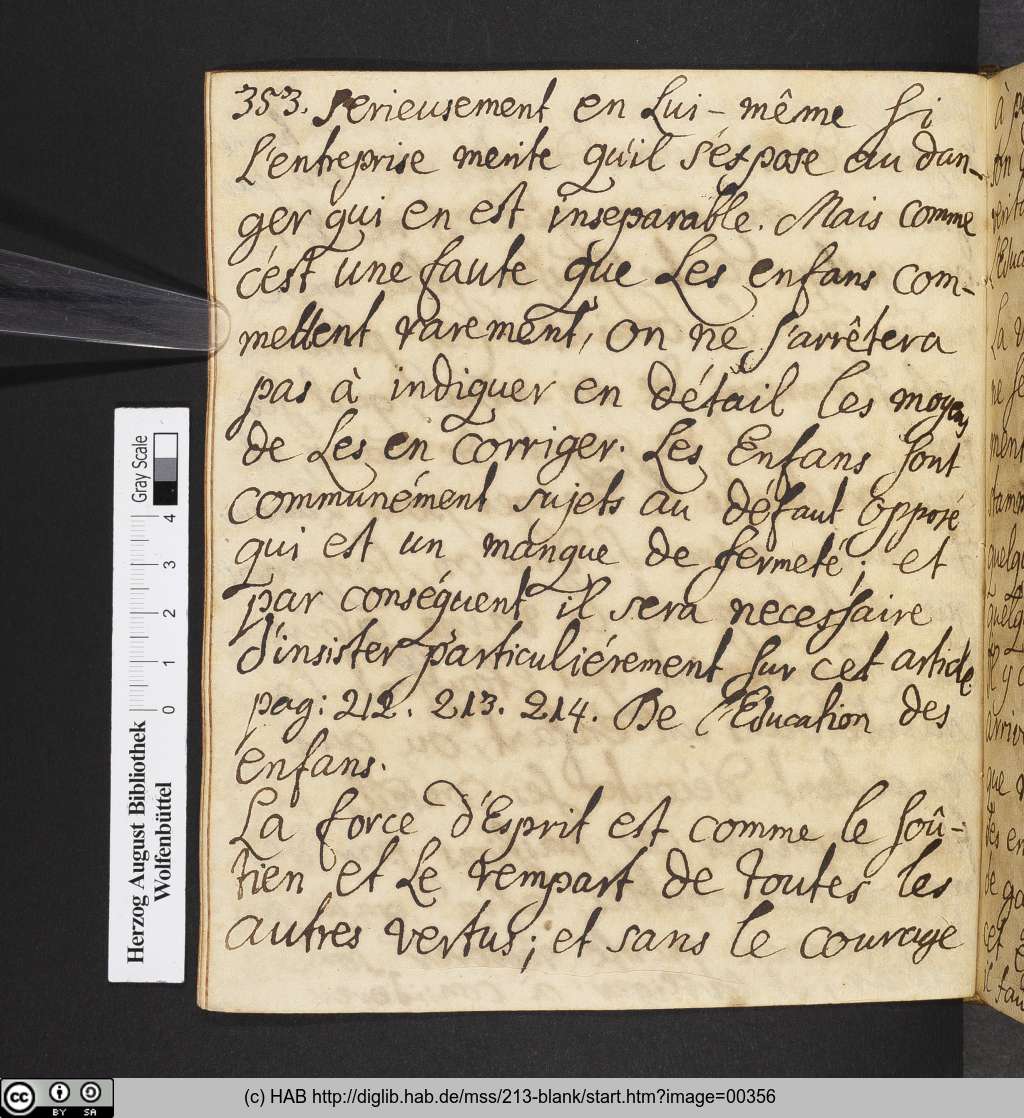 353. serieusement en Lui-même si
L'entreprise merite qu'il s'expose au dan-
ger qui en est inseparable. Mais comme
c'est une faute que Les enfans com-
mettent rarement, on ne s'arrêtera
pas à indiquer en détail les moyens
de Les en corriger. Les Enfans sont
communément sujets au défaut opposé
qui est un manque de fermeté; et
par conséquent il sera necessaire
d'insister particuliérement sur cet article
pag: 212. 213. 214. De l'Education des
enfans.
La force d'Esprit est comme le soû-
tien et Le rempart de toutes les
autres vertus; et sans le courage
Gray Scale
0 1 2 3 4
Herzog August Bibliothek
Wolfenbüttel
cc BY SA
(c) HAB http://diglib.hab.de/mss/213-blank/start.htm?image=00356